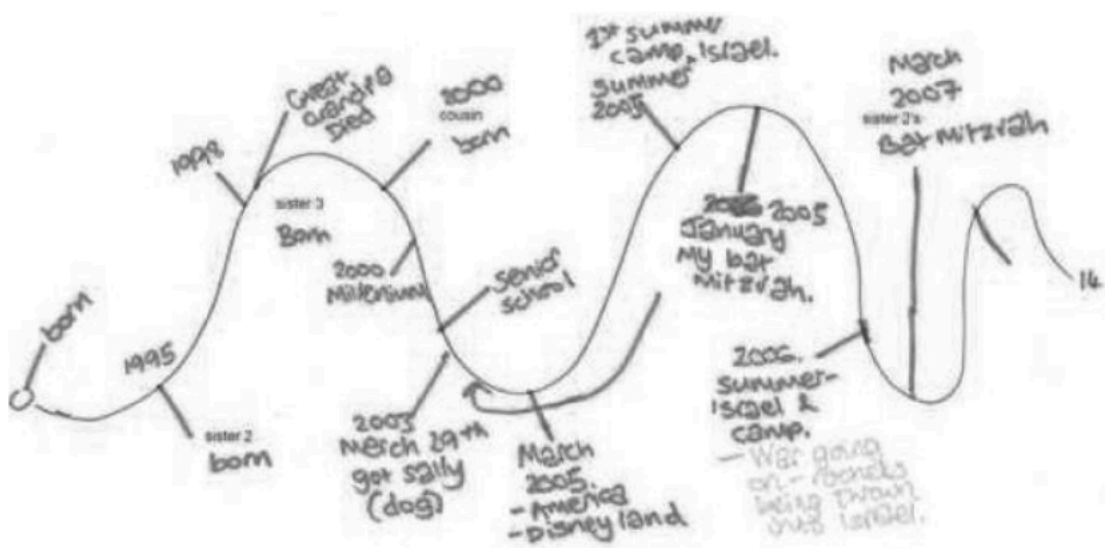 born
1995
sister 2
born
1998
Great
Grandpa
Died
sister 3
Born
2000
cousin
born
2000
Millenium
senior
school
2003
March 29th
got sally
(dog)
March
2005.
- America
- Disneyland
1st summer
camp, Israel.
summer
2005
2005
January
My bat
Mitzvah.
2006.
summer-
Israel &
camp.
- War going
on - rockets
being thrown
into Israel.
March
2007
sister 2's
Bat Mitzvah
14